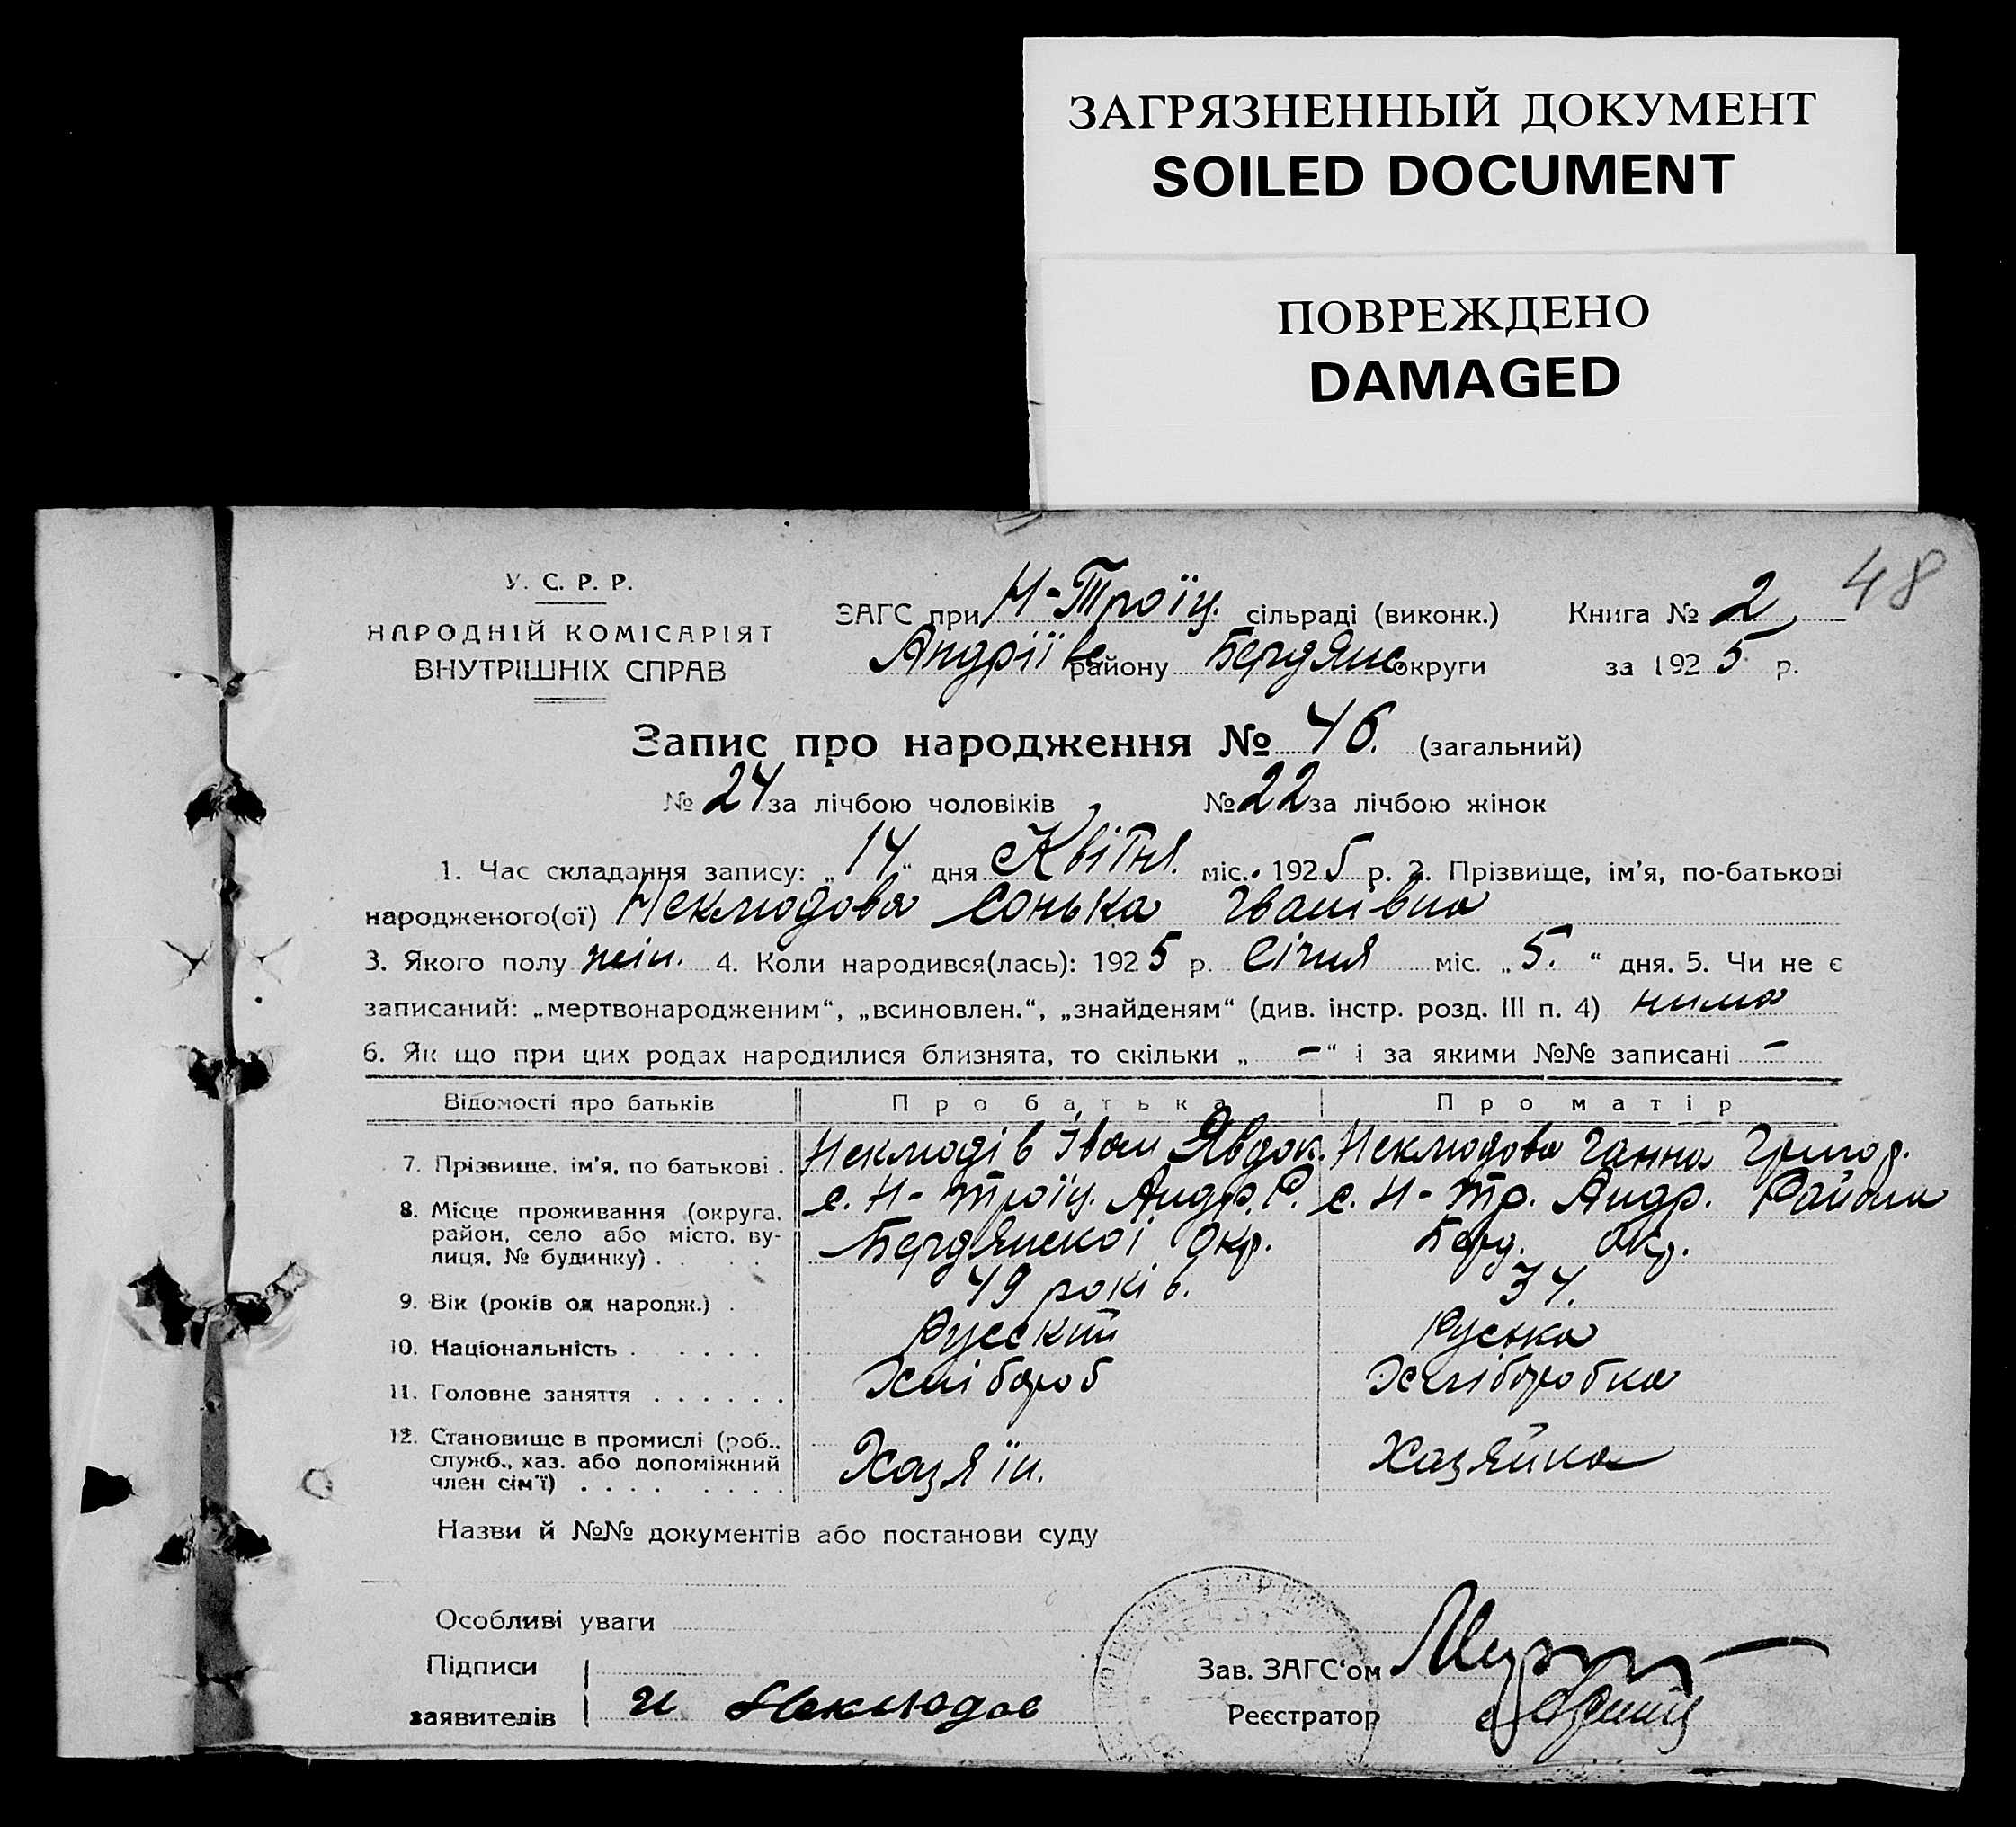 ЗАГРЯЗНЕННЫЙ ДОКУМЕНТ
SOILED DOCUMENT
ПОВРЕЖДЕНО
DAMAGED
48
У. С. Р. Р.
НАРОДНІЙ КОМІСАРІЯТ
ВНУТРІШНІХ СПРАВ
ЗАГС при Н-Троїц. сільраді (виконк.) Книга № 2
Андріївс району Бердянс округи за 1925 р.
Запис про народження № 46. (загальний)
№ 24 за лічбою чоловіків № 22 за лічбою жінок
1. Час складання запису: „14“ дня Квітня. міс. 1925 р. 2. Прізвище, ім’я, по-батькові
народженого(ої) Неклюдова Сонька Іванівна
3. Якого полу жін. 4. Коли народився(лась): 1925 р. Січня міс. „5.“ дня. 5. Чи не є
записаний: „мертвонародженим“, „всиновлен.“, „знайденям“ (див. інстр. розд. III п. 4) нима
6. Як що при цих родах народилися близнята, то скільки „ – “ і за якими №№ записані –
Відомості про батьків Про батька Про матір
7. Прізвище, ім’я, по батькові . Неклюдів Іван Явдок. Неклюдова Ганна Григор.
8. Місце проживання (округа, район, село або місто, вулиця, № будинку) . с. Н-Троїц. Андр. Р. с. Н-Тр. Андр. Района
Бердянскої Окр. Берд. Окр.
9. Вік (років од народж.) . 49 років. 34.
10. Національність . Русский Руська
11. Головне заняття . Хлібороб Хліборобка
12. Становище в промислі (роб., служб., хаз. або допоміжний член сім’ї) . Хазяїн. Хазяйка
Назви й №№ документів або постанови суду
Особливі уваги
Підписи
заявителів И Неклюдов
Зав. ЗАГС‘ом
Реєстратор